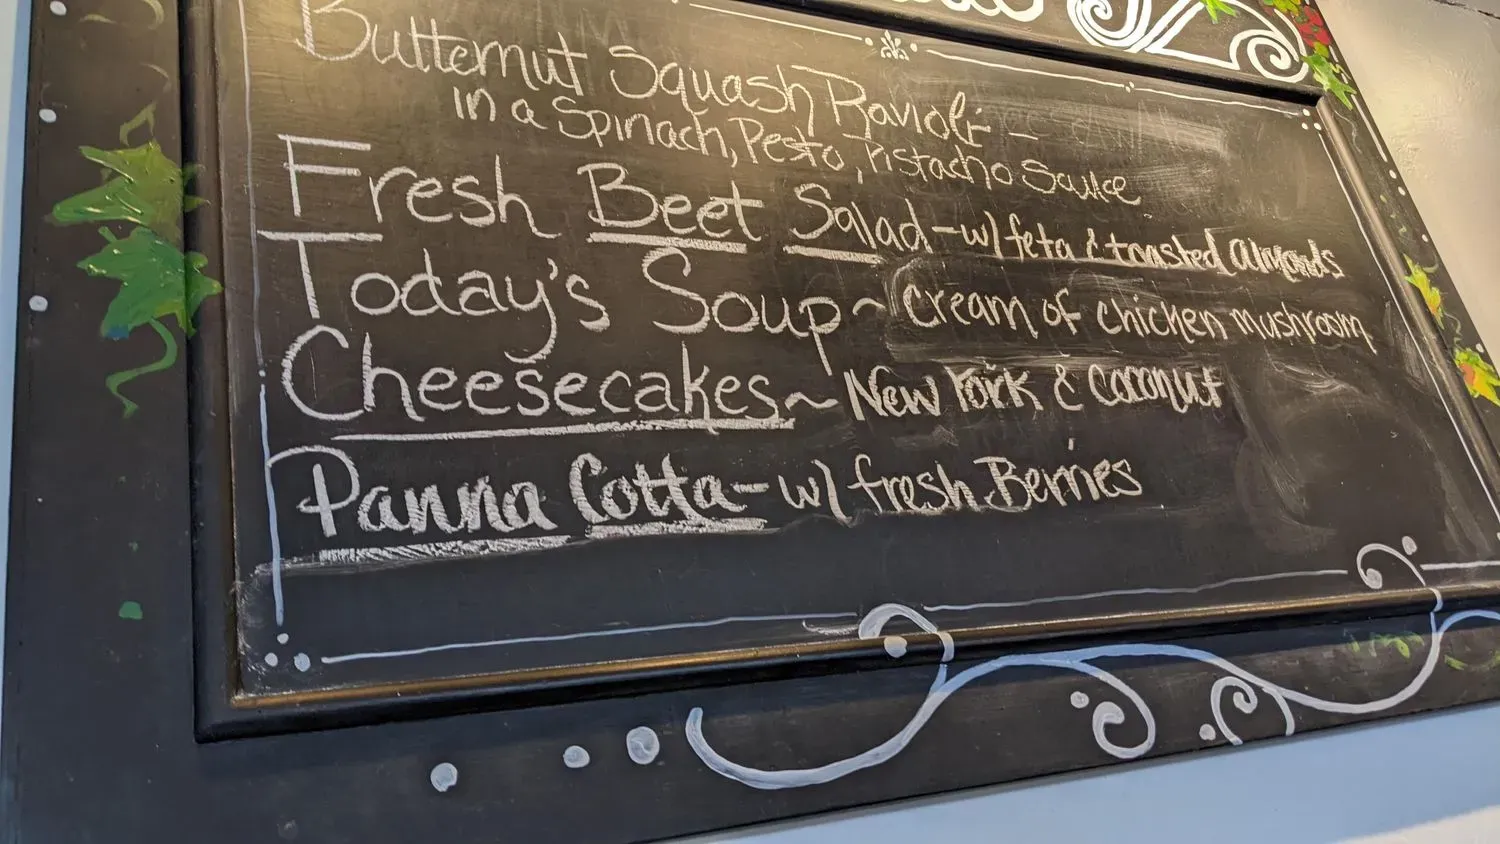 Butternut Squash Ravioli -
in a Spinach, Pesto, Pistachio Sauce
Fresh Beet Salad - w/ feta & toasted almonds
Today's Soup ~ Cream of chicken mushroom
Cheesecakes ~ New York & Coconut
Panna Cotta - w/ fresh Berries